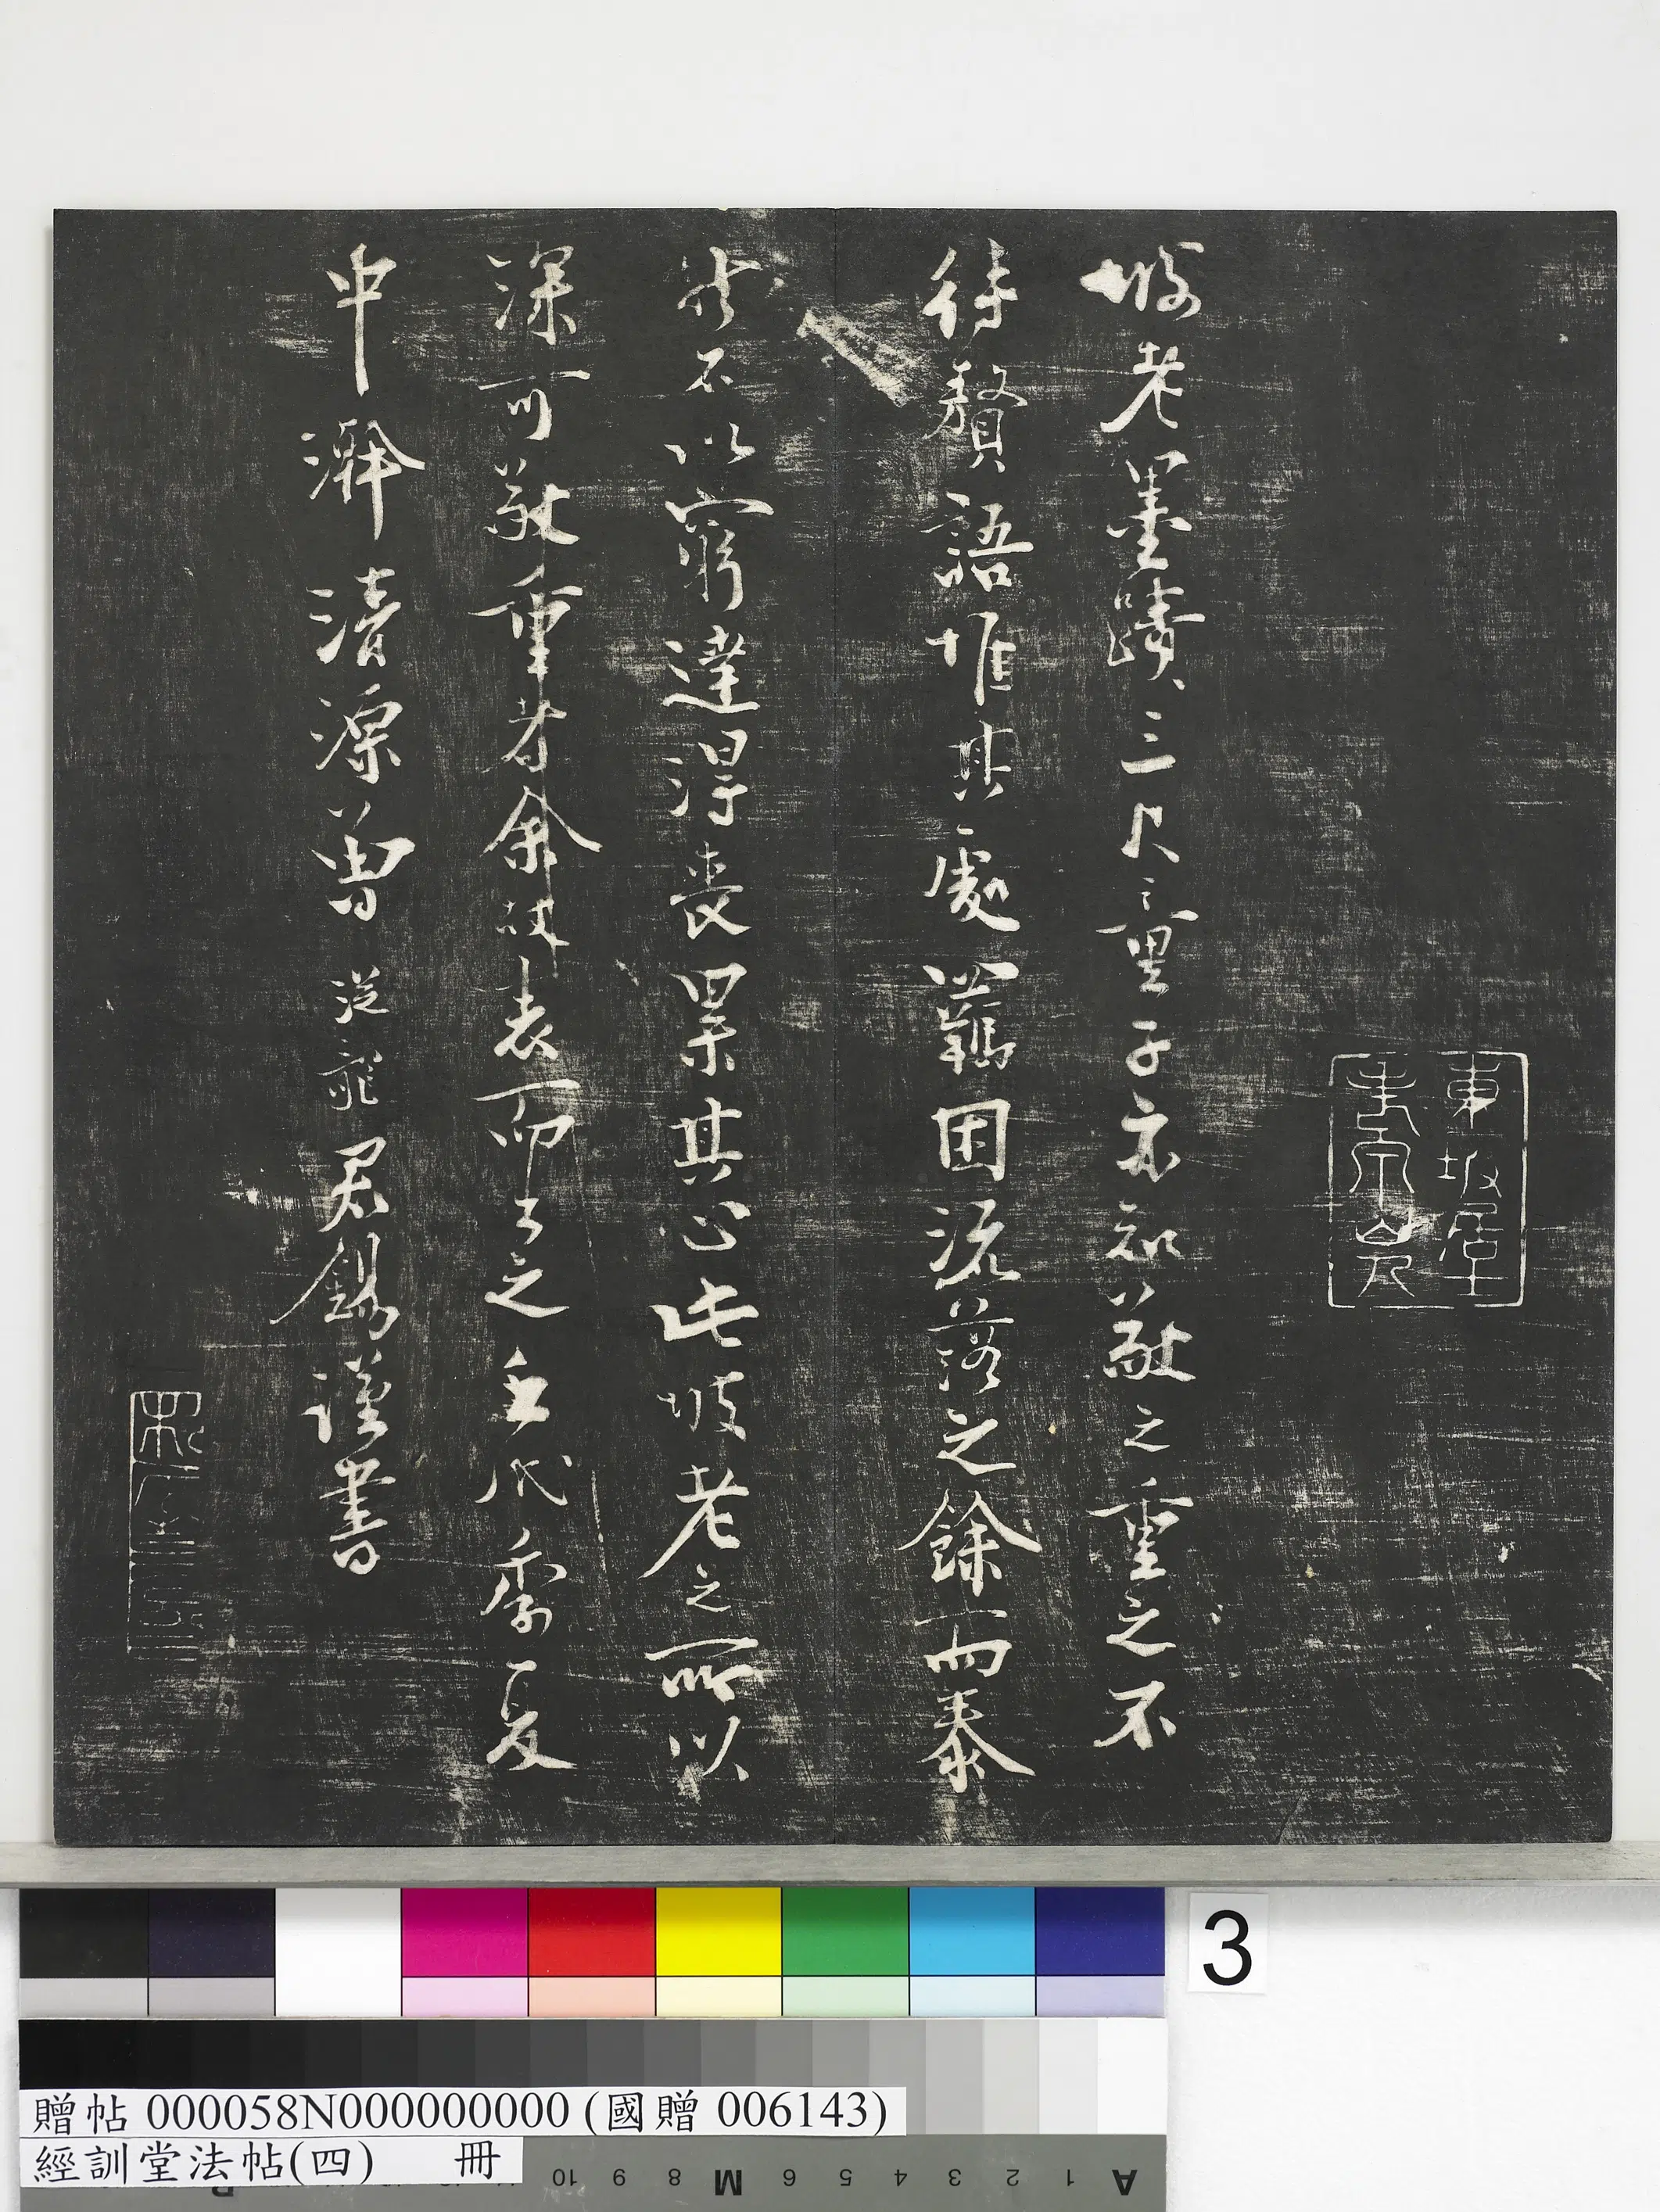 坡老墨蹟三尺童子亦知敬之重之不
待贅語惟其處羈困流落之餘而泰
然不以窮達得喪累其心此坡老之所以
深可敬重者余故表而出之至代季夏
中澣清源曾從龍君錫謹書
3
贈帖 000058N000000000 (國贈 006143)
經訓堂法帖(四) 冊
10 9 8 M 6 5 4 3 2 1 A